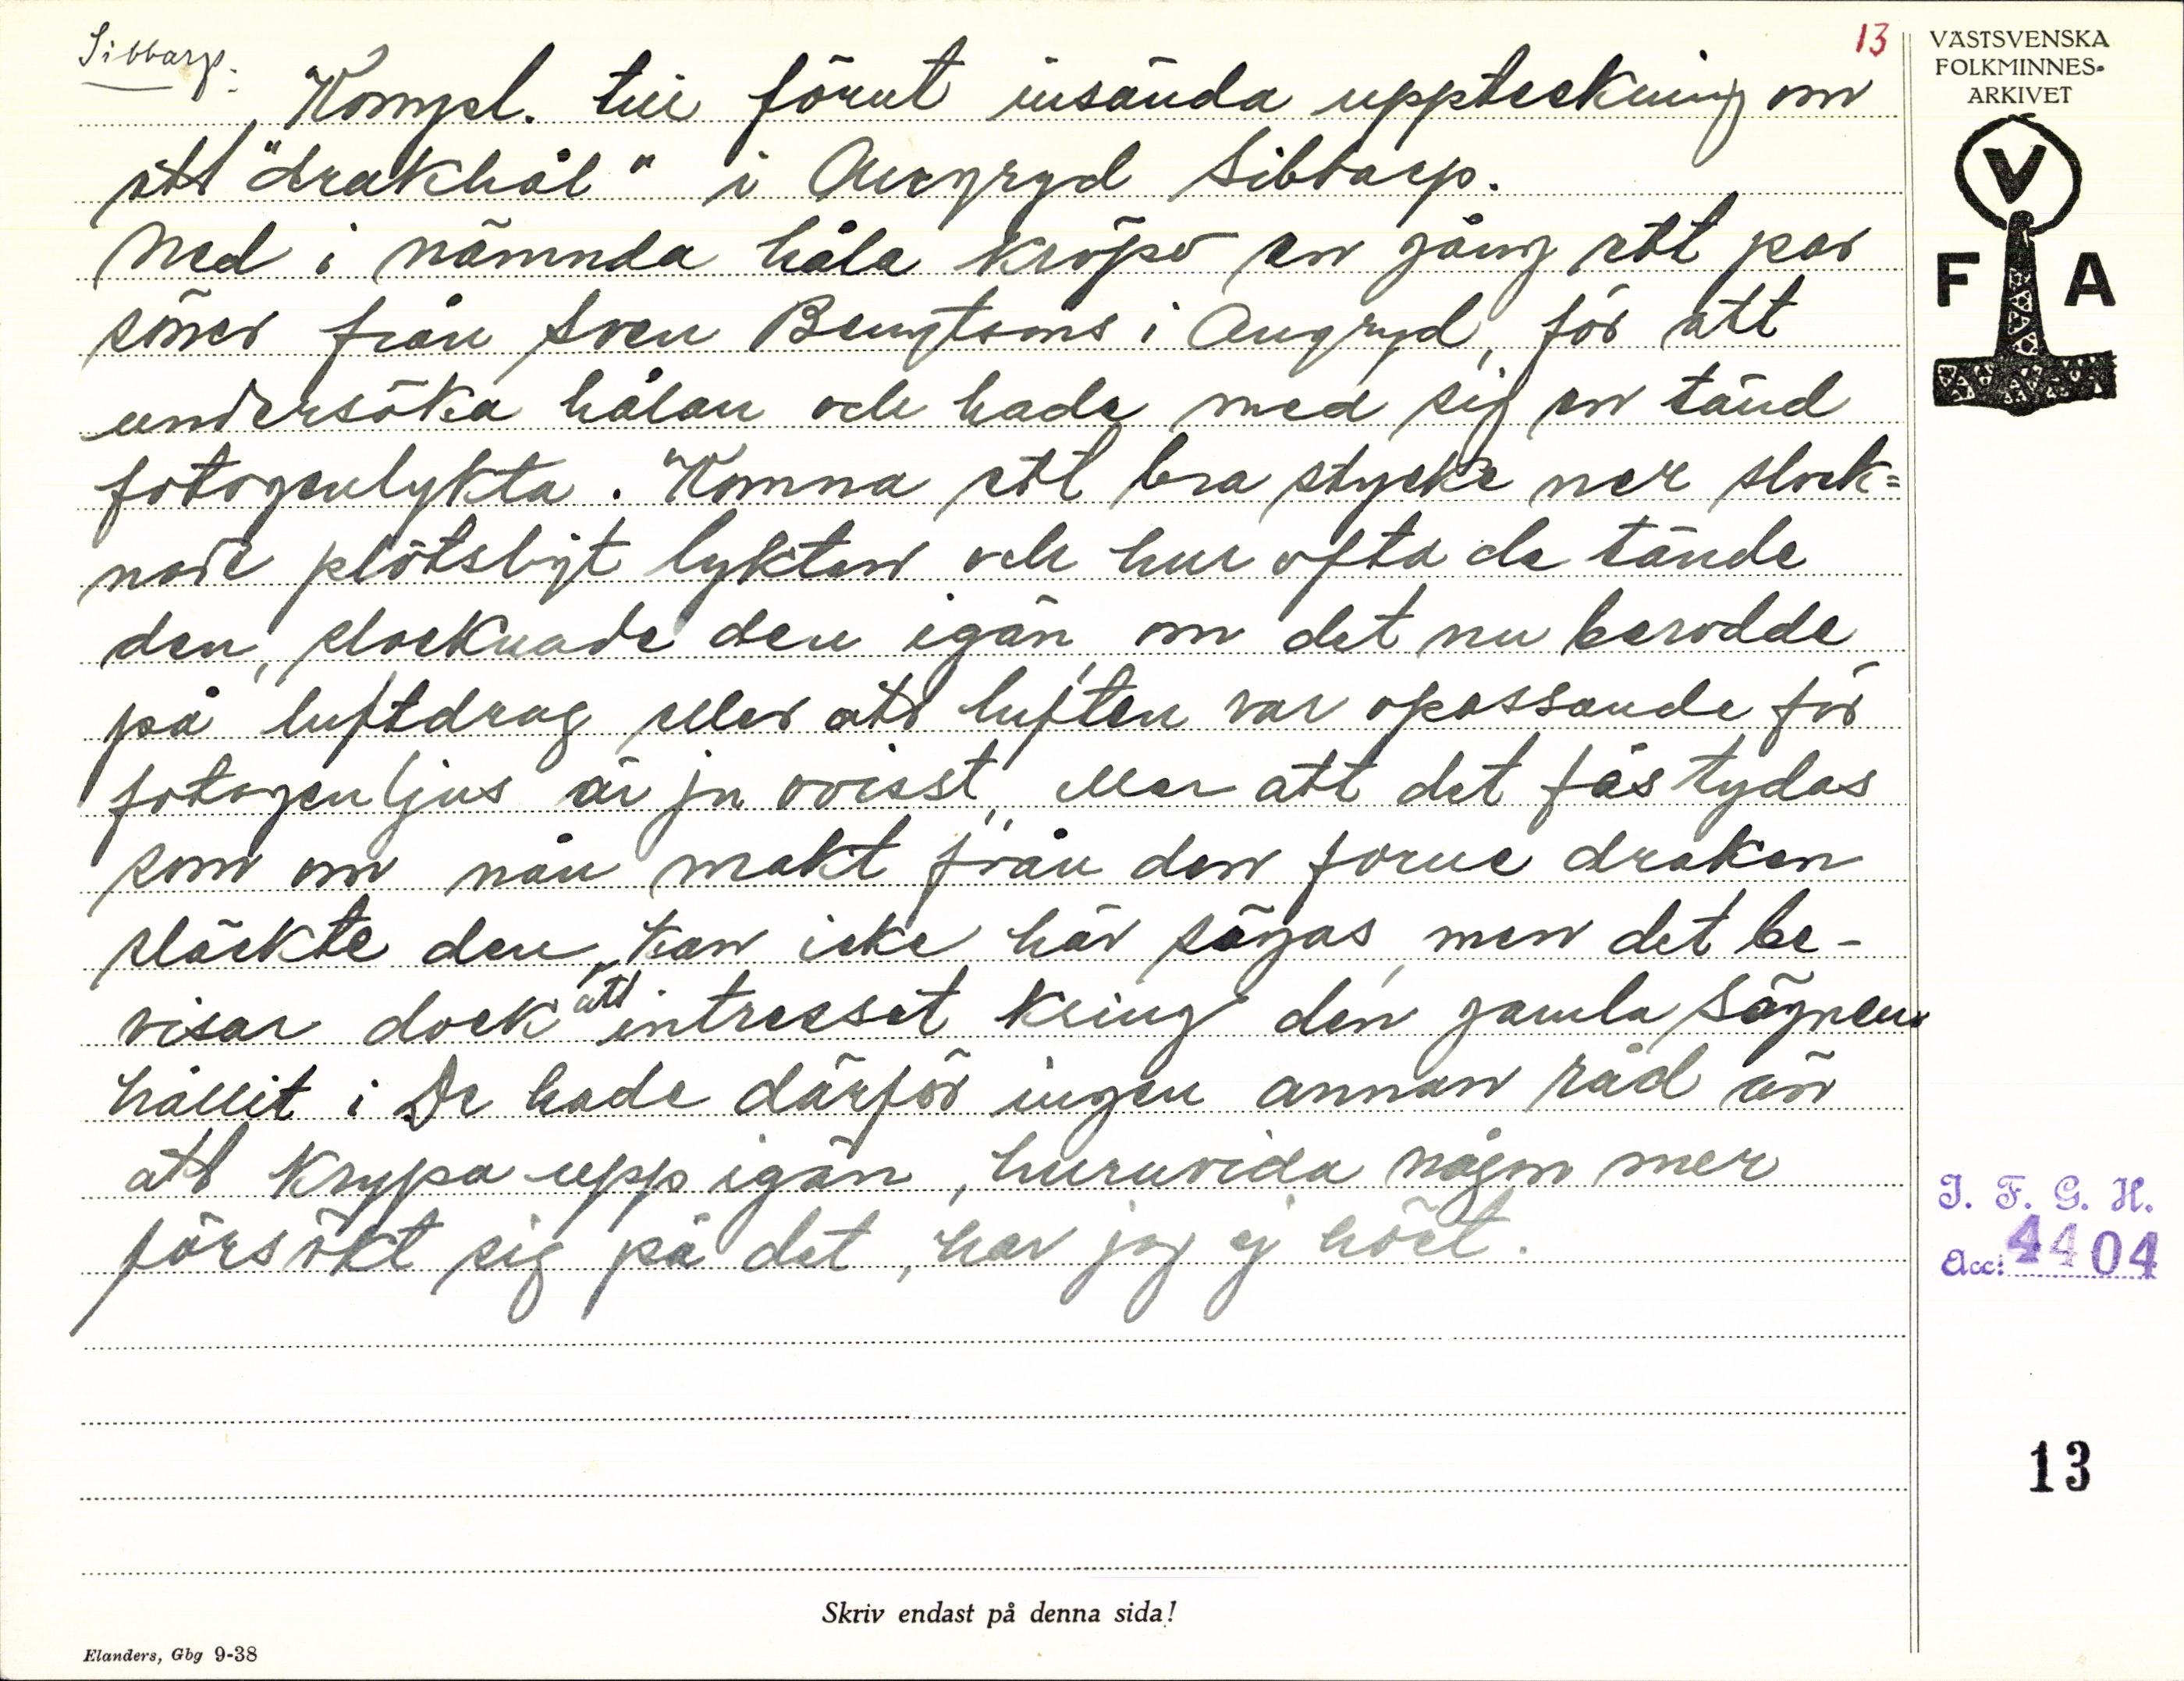 Sibbarp.
13
Kompl. till förut insända uppteckning om
ett "drakhål" i Sibbarp.
Ned i nämnda håla kröpo en gång ett par
söner från Sven Bengtsons i Angryd, för att
undersöka hålan och hade med sig en tänd
fotogenlykta. Komna ett bra stycke ner slock=
nade plötsligt lyktan och hur ofta de tände
den, slocknade den igän, om det nu berodde
på luftdrag eller att luften var opassande för
fotogenljus är ju ovisst, eller att det fås tydas
som om nån makt från den forne draken
släckte den, kan icke här sägas, men det be-
visar dock att intresset kring den gamla sägnen
hållit i De hade därför ingen annan råd än
att krypa upp igän, huruvida någon mer
försökt sig på det, har jag ej hört.
Skriv endast på denna sida!
Elanders, Gbg 9-38
VÄSTSVENSKA
FOLKMINNES-
ARKIVET
V
F A
I. F. G. H.
Acc: 4404
13